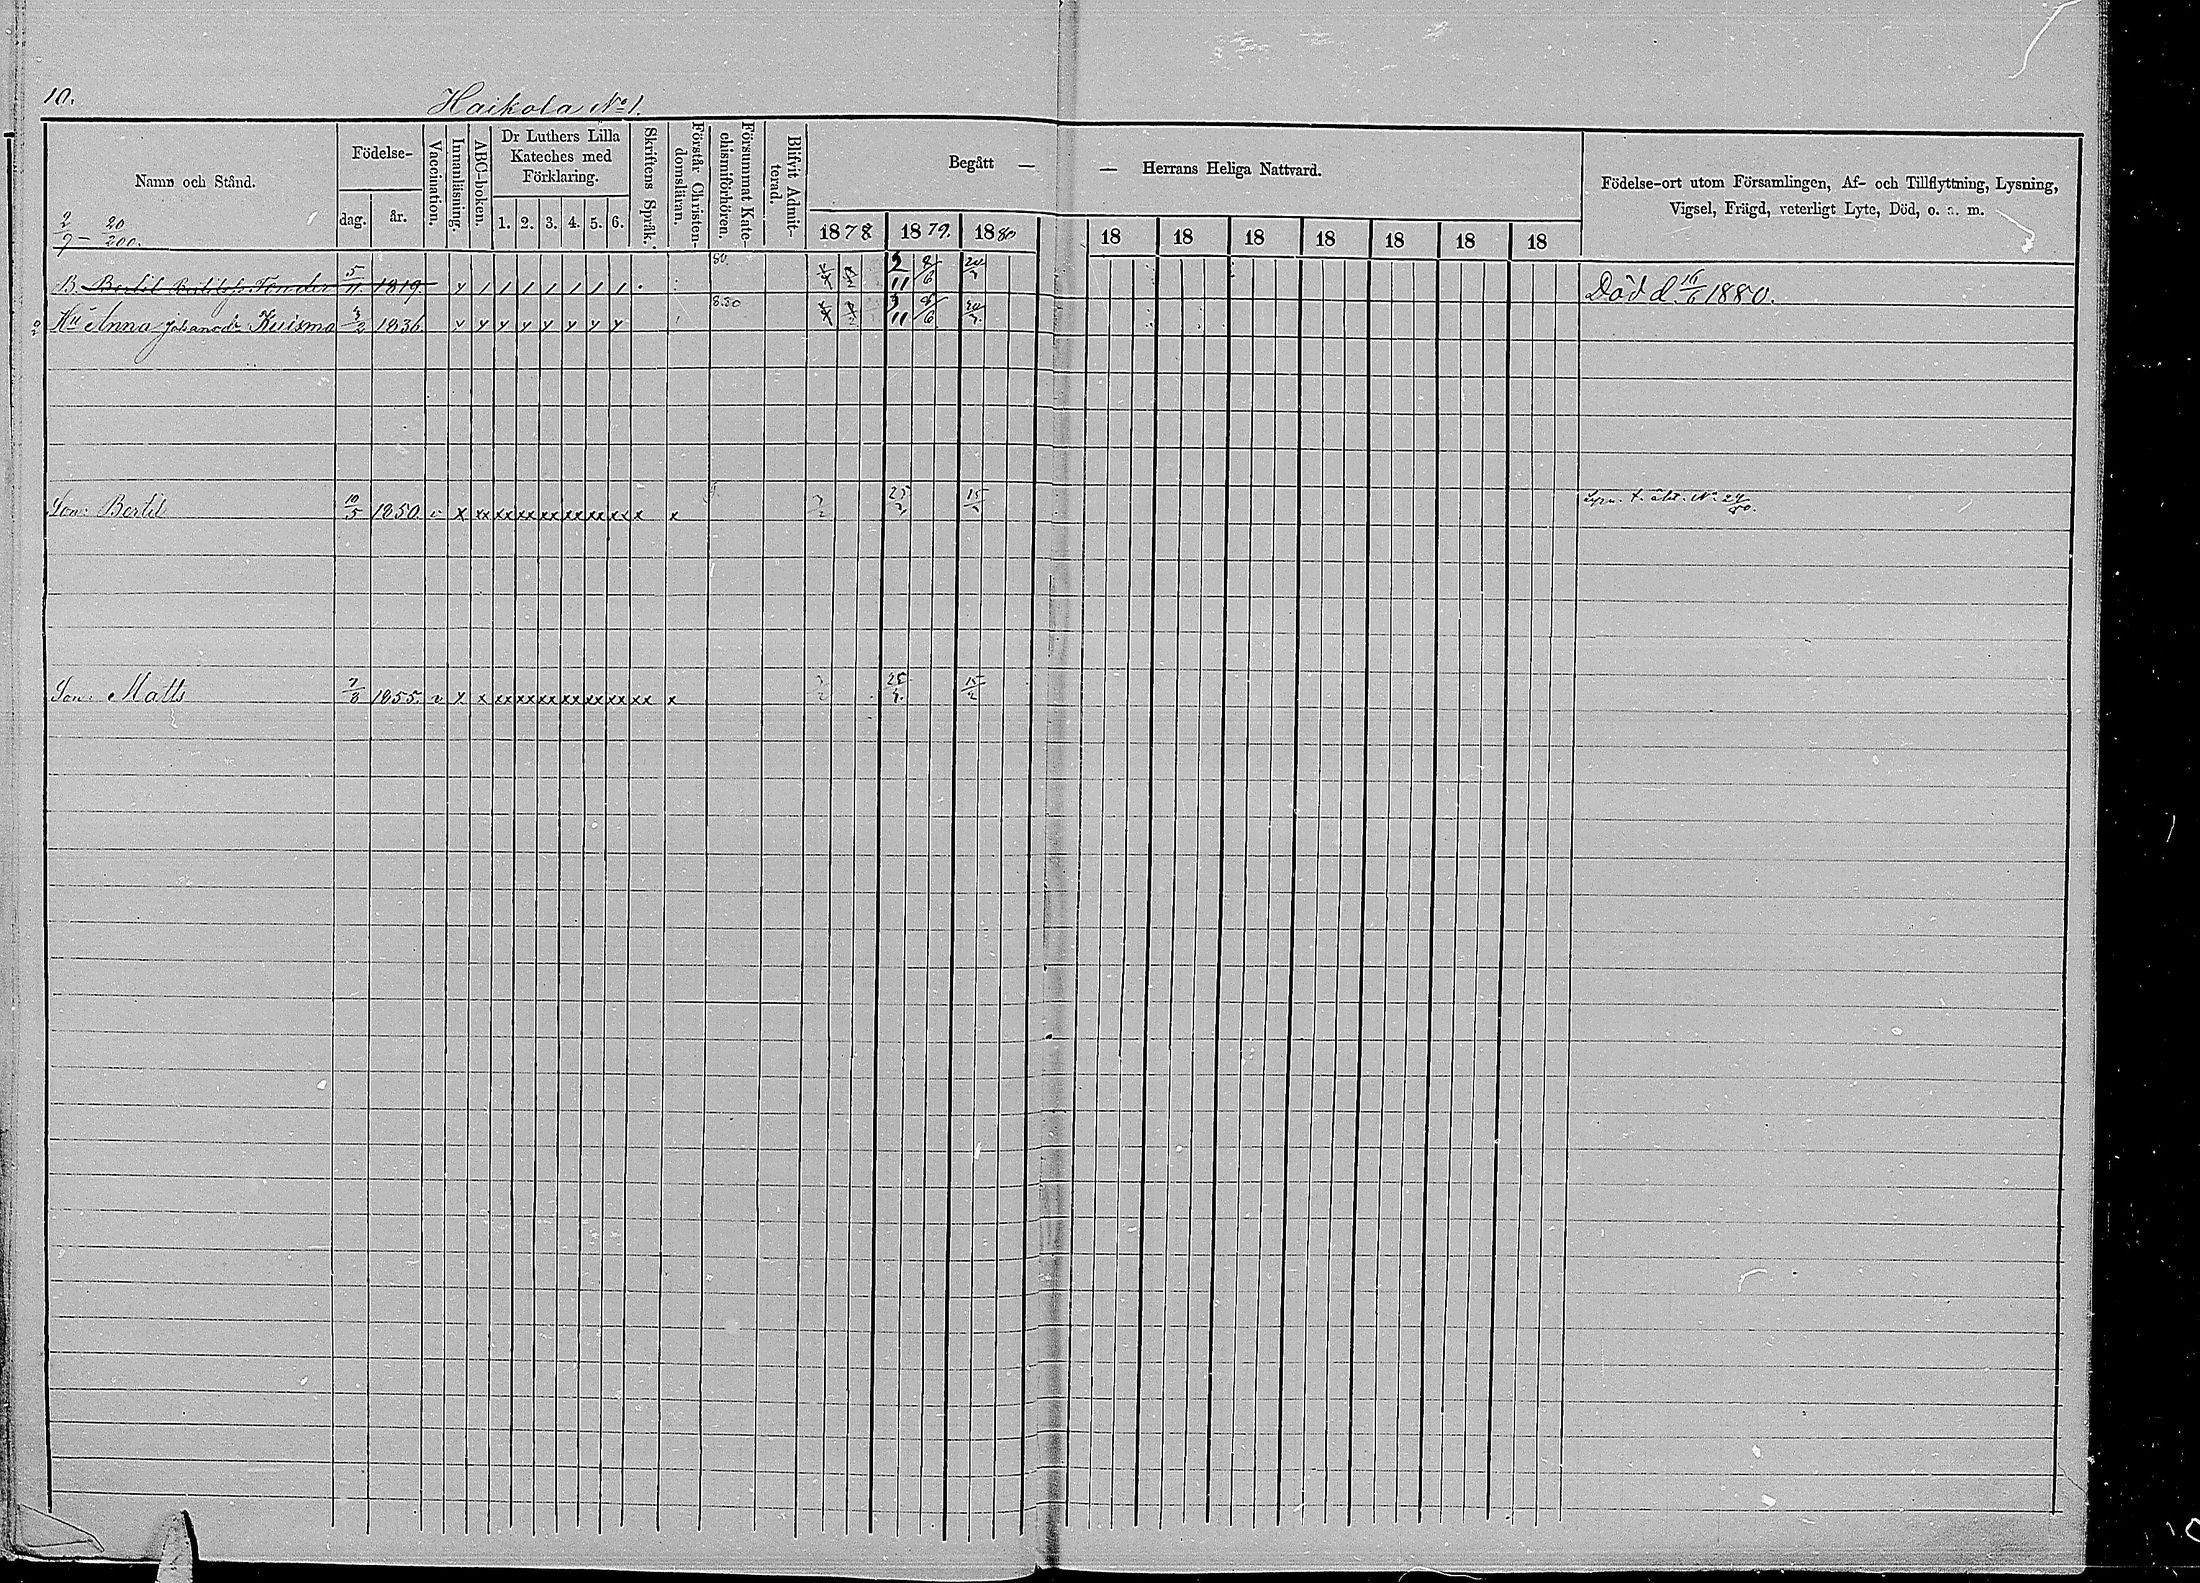 10.
Haikola No 1.
Namn och Stånd.
Födelse-
dag.
år.
Vaccination.
Innanläsning.
ABC-boken.
Dr Luthers Lilla
Kateches med
Förklaring.
1. 2. 3. 4. 5. 6.
Skriftens Språk.
Förstår Christen-
domsläran.
Försummat Kate-
chismiförhören.
Blifvit Admit-
terad.
Begått —
— Herrans Heliga Nattvard.
1878 1879. 1880 18 18 18 18 18 18 18
Födelse-ort utom Församlingen, Af- och Tillflyttning, Lysning,
Vigsel, Frägd, veterligt Lyte, Död, o. s. m.
2/9 — 20/200.
B. Bertil Bertilss. Tonder 5/11 1819. 80. 8/6 Död d. 16/6 1880.
Hu Anna Johansdr Kuisma 1836. 8.80 8/6
Son: Bertil 10/5 1850. v x xx xx xx xx xx xx xx x x
Son: Matts 7/8 1855. v x x xx xx xx xx xx xx xx x